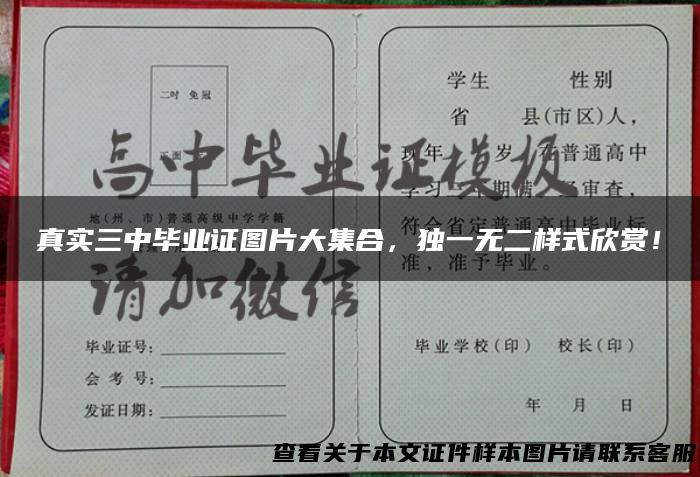 学生 性别
二吋 免冠
省 县(市区)人,
正面
现年 岁,在普通高中
高中毕业证模板
学习 期满, 审查,
地(州、市)普通高级中学学籍
符合省定普通高中毕业标
真实三中毕业证图片大集合，独一无二样式欣赏！
准，准予毕业。
请加微信
毕业证号:
毕业学校(印) 校长(印)
会考号:
发证日期:
年 月 日
查看关于本文证件样本图片请联系客服